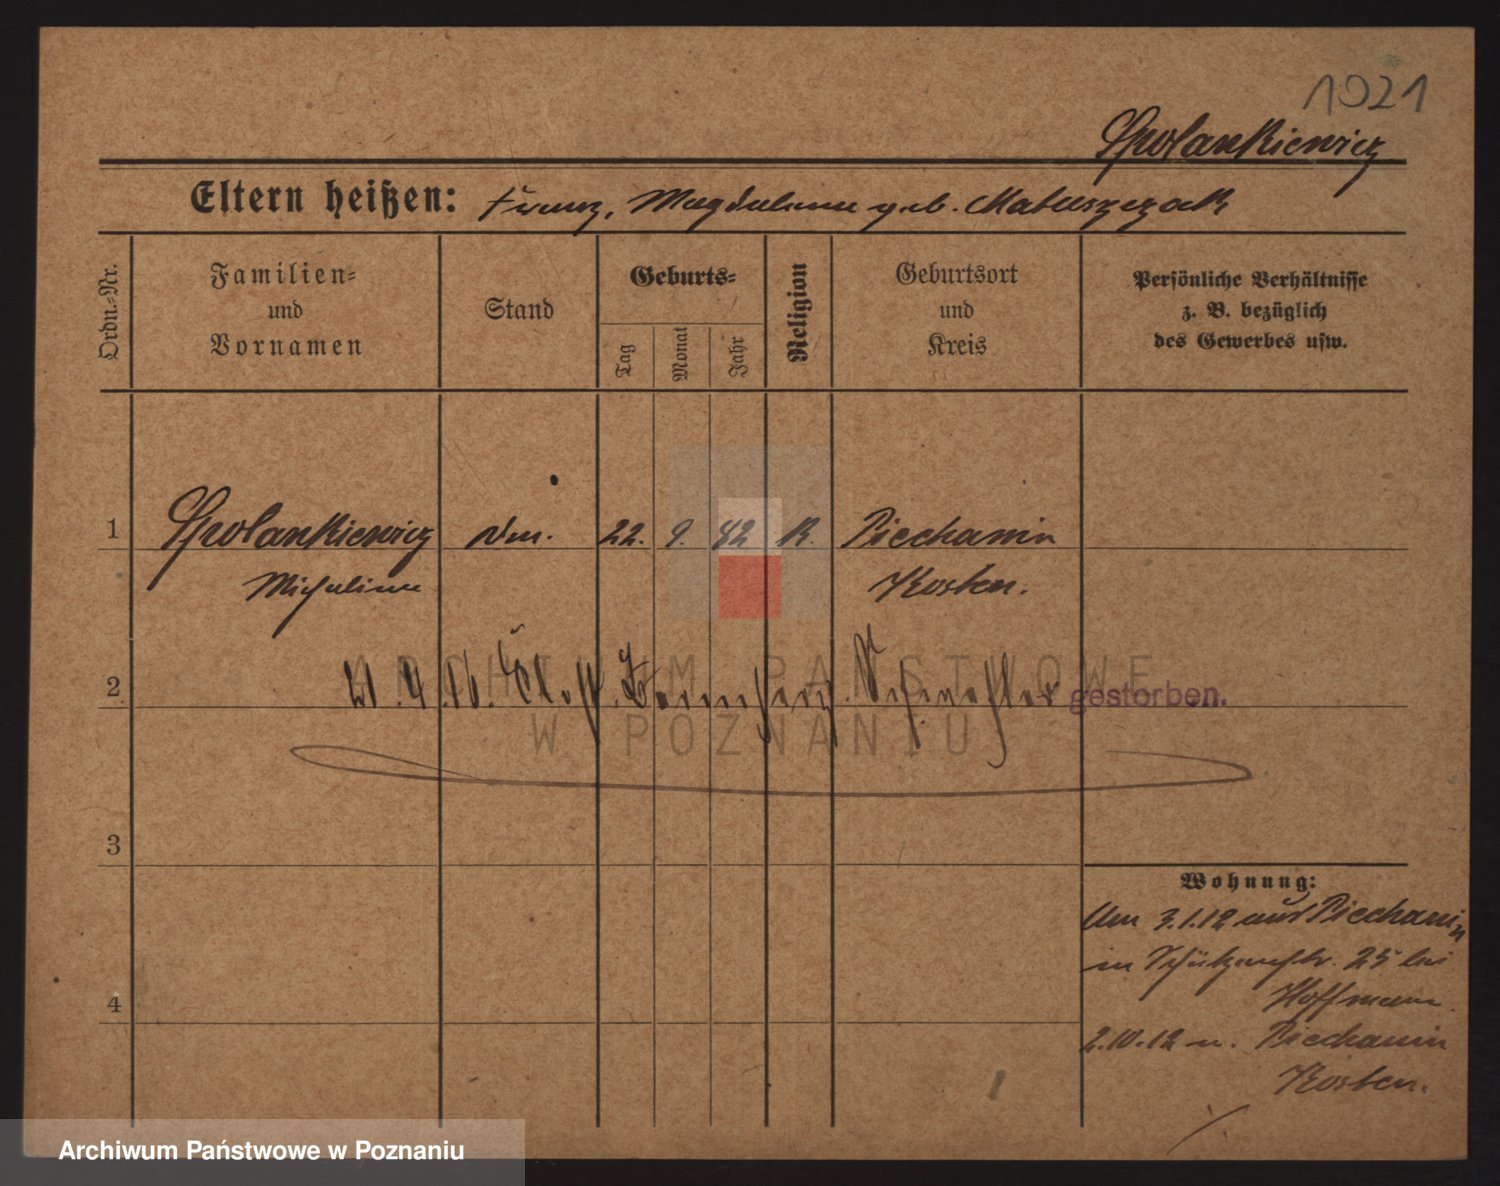 1921
Spolankiewicz
Eltern heißen: Franz, Magdalena geb. Matuszczak
Ordn.=Nr.
Familien=
und
Vornamen
Stand
Geburts=
Tag
Monat
Jahr
Religion
Geburtsort
und
Kreis
Persönliche Verhältnisse
z. B. bezüglich
des Gewerbes usw.
1 Spolankiewicz 22. 9. 42 K. Piechanin
Michalina Kosten.
2 gestorben.
3
4
Wohnung:
Am 3.1.12 aus Piechanin
in Schützenstr. 25 bei
Hoffmann
2.10.12 n. Piechanin
Kosten.
ARCHIWUM PAŃSTWOWE
W POZNANIU
Archiwum Państwowe w Poznaniu